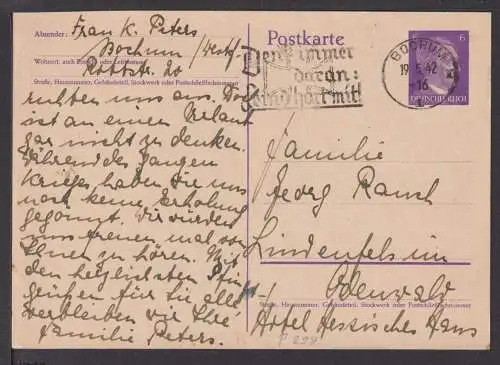 Absender: Frau K. Peters
Bochum /Westf.
Wohnort, auch Zustell- oder Leitpostamt
Rottstr. 20
Straße, Hausnummer, Gebäudeteil, Stockwerk oder Postschließfachnummer
ruhten uns aus. Da
ist an einen Urlaub
gar nicht zu denken.
Während des ganzen
Krieges haben Sie uns
noch keine Erholung
gegönnt. Wir würden
uns freuen mal von
Ihnen zu hören. Mit
den herzlichsten Pfingst
grüßen für Sie alle,
verbleiben wir Ihre
Familie Peters.
Postkarte
Denk immer
daran:
Feind hört mit!
BOCHUM
19.5.42
-16
6
DEUTSCHES REICH
Familie
Georg Rauch
Lindenfels im
Odenwald
Straße, Hausnummer, Gebäudeteil, Stockwerk oder Postschließfachnummer
Hotel Hessisches Haus
P 299